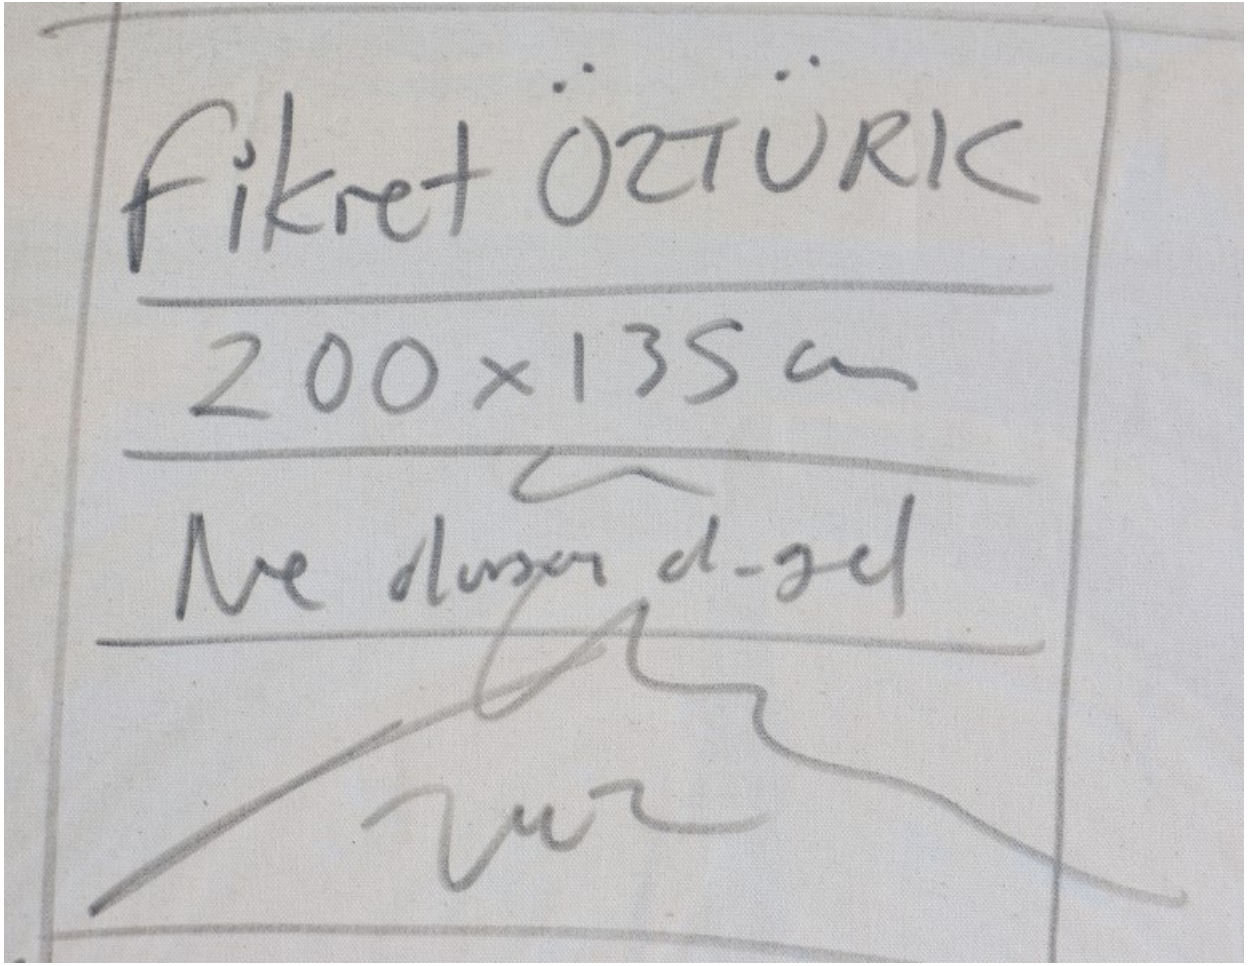 Fikret ÖZTÜRK
200x135 cm
Ne olursan ol-gel